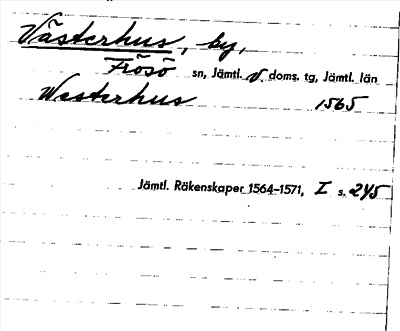 Västerhus, by,
Frösö sn, Jämtl. v. doms. tg, Jämtl. län
Westerhus 1565
Jämtl. Räkenskaper 1564-1571, I s. 245